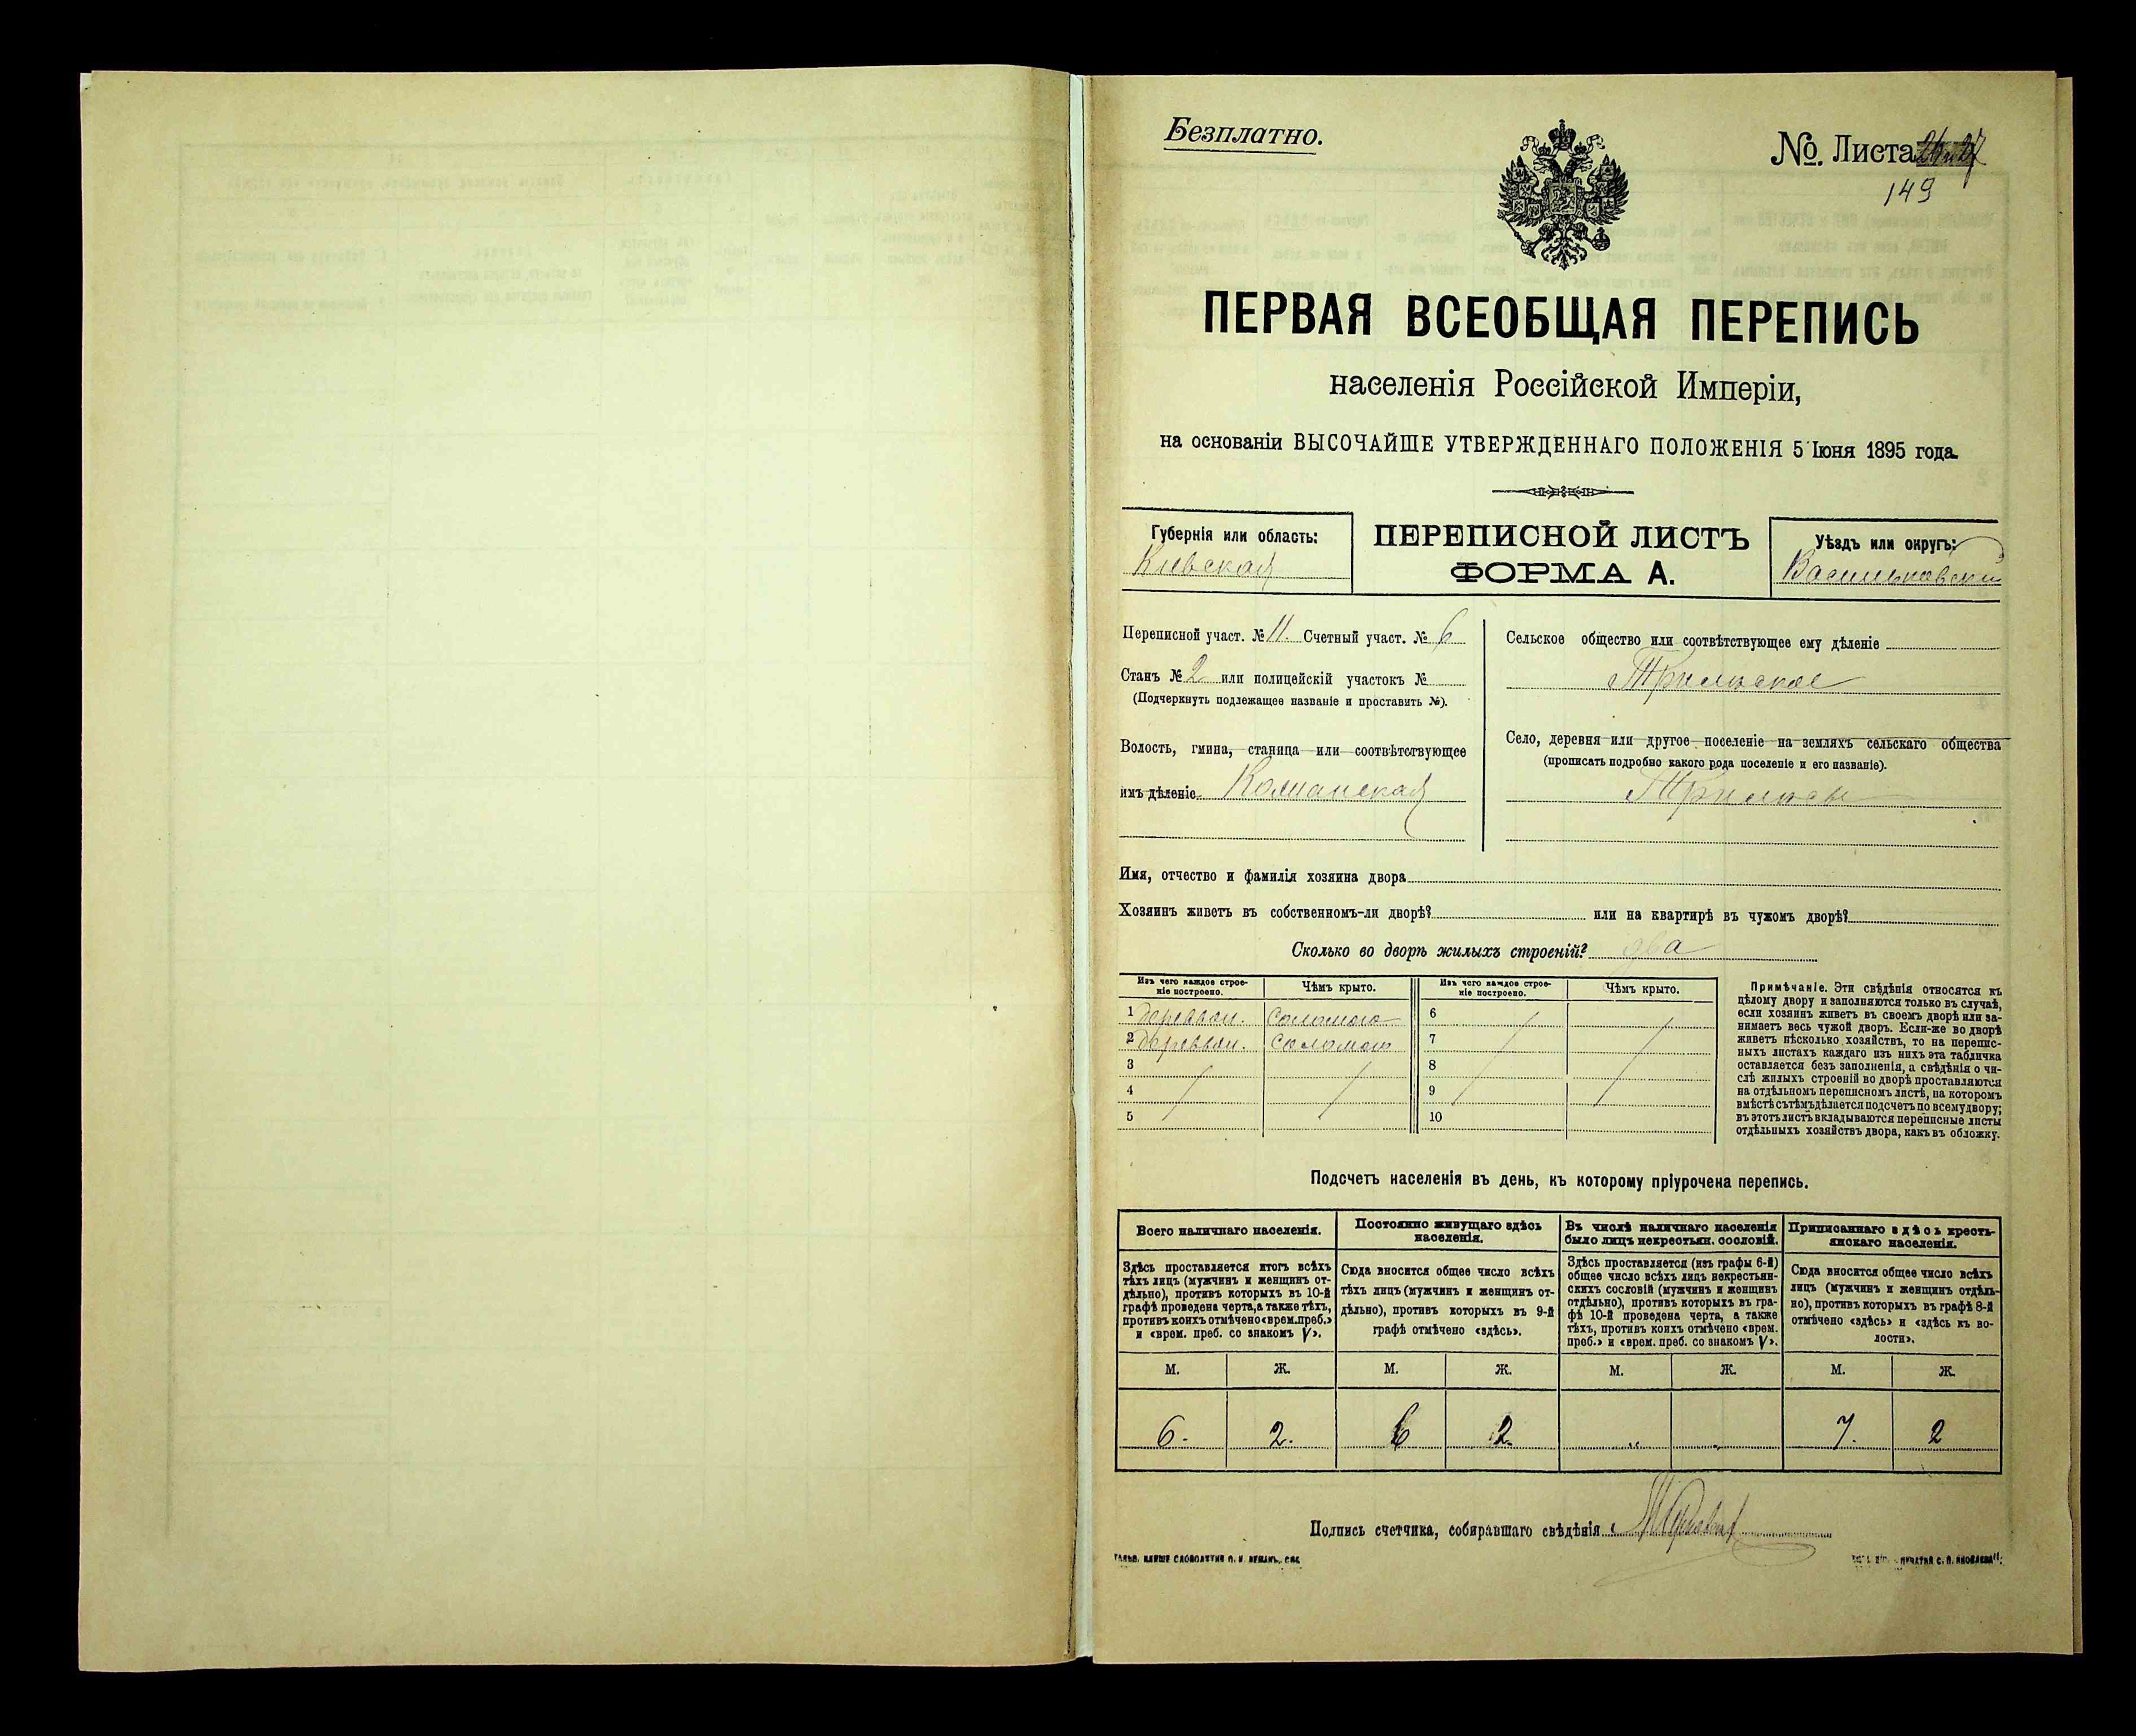 Безплатно.
№ Листа
149
ПЕРВАЯ ВСЕОБЩАЯ ПЕРЕПИСЬ
населенія Россійской Имперіи,
на основаніи ВЫСОЧАЙШЕ УТВЕРЖДЕННАГО ПОЛОЖЕНІЯ 5 Іюня 1895 года.
Губернія или область:
Кіевская
ПЕРЕПИСНОЙ ЛИСТЪ
ФОРМА А.
Уѣздъ или округъ:
Васильковскій
Переписной участ. № 11. Счетный участ. № 6
Станъ № 2 или полицейскій участокъ №
(Подчеркнуть подлежащее названіе и проставить №).
Волость, гмина, станица или соотвѣтствующее
имъ дѣленіе
Сельское общество или соотвѣтствующее ему дѣленіе
Трилѣсское
Село, деревня или другое поселеніе на земляхъ сельскаго общества
(прописать подробно какого рода поселеніе и его названіе).
Имя, отчество и фамилія хозяина двора
Хозяинъ живетъ въ собственномъ-ли дворѣ? или на квартирѣ въ чужомъ дворѣ?
Сколько во дворѣ жилыхъ строеній? два
Изъ чего каждое строе-
ніе построено.
Чѣмъ крыто.
Изъ чего каждое строе-
ніе построено.
Чѣмъ крыто.
1 деревян. Соломою 6
2 деревян. Соломою 7
3 8
4 9
5 10
Примѣчаніе. Эти свѣдѣнія относятся къ
цѣлому двору и заполняются только въ случаѣ,
если хозяинъ живетъ въ своемъ дворѣ или за-
нимаетъ весь чужой дворъ. Если-же во дворѣ
живетъ нѣсколько хозяйствъ, то на перепис-
ныхъ листахъ каждаго изъ нихъ эта табличка
оставляется безъ заполненія, а свѣдѣнія о чи-
слѣ жилыхъ строеній во дворѣ проставляются
на отдѣльномъ переписномъ листѣ, на которомъ
вмѣстѣ съ тѣмъ дѣлается подсчетъ по всему двору;
въ этотъ листъ вкладываются переписные листы
отдѣльныхъ хозяйствъ двора, какъ въ обложку.
Подсчетъ населенія въ день, къ которому пріурочена перепись.
Всего наличнаго населенія.
Здѣсь проставляется итогъ всѣхъ
тѣхъ лицъ (мужчинъ и женщинъ от-
дѣльно), противъ которыхъ въ 10-й
графѣ проведена черта, а также тѣхъ,
противъ коихъ отмѣчено «врем. преб.»
и «врем. преб. со знакомъ V».
Постоянно живущаго здѣсь
населенія.
Сюда вносится общее число всѣхъ
тѣхъ лицъ (мужчинъ и женщинъ от-
дѣльно), противъ которыхъ въ 9-й
графѣ отмѣчено «здѣсь».
Въ числѣ наличнаго населенія
было лицъ некрестьян. сословій.
Здѣсь проставляется (изъ графы 6-й)
общее число всѣхъ лицъ некрестьян-
скихъ сословій (мужчинъ и женщинъ
отдѣльно), противъ которыхъ въ гра-
фѣ 10-й проведена черта, а также
тѣхъ, противъ коихъ отмѣчено «врем.
преб.» и «врем. преб. со знакомъ V».
Приписаннаго здѣсь кресть-
янскаго населенія.
Сюда вносится общее число всѣхъ
лицъ (мужчинъ и женщинъ отдѣль-
но), противъ которыхъ въ графѣ 8-й
отмѣчено «здѣсь» и «здѣсь къ во-
лости».
М. Ж. М. Ж. М. Ж. М. Ж.
6. 2. 6 2. " " 7. 2
Подпись счетчика, собиравшаго свѣдѣнія